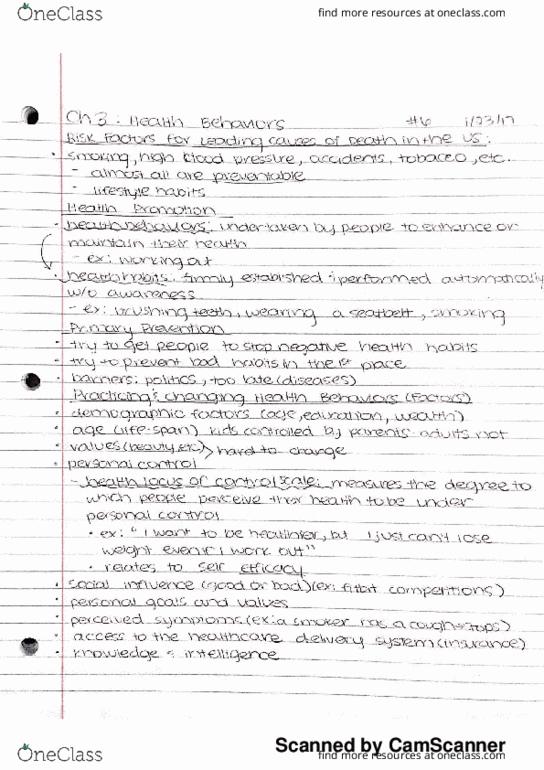 OneClass find more resources at oneclass.com
Ch 3: Health Behaviors #6 1/23/17
Risk Factors for Leading Causes of Death in the US:
• smoking, high blood pressure, accidents, tobacco, etc.
- almost all are preventable
- lifestyle habits
Health Promotion
• health behaviors: undertaken by people to enhance or
maintain their health
- ex: working out
• health habits: firmly established & performed automatically
w/o awareness
- ex: brushing teeth, wearing a seatbelt, smoking
Primary Prevention
• try to get people to stop negative health habits
• try to prevent bad habits in the 1st place
• barriers: politics, too late (diseases)
Practicing & changing Health Behaviors (Factors)
• demographic factors (age, education, wealth)
• age (life-span) kids controlled by parents adults not
• values (beauty, etc) > hard to change
• personal control
- health locus of control scale: measures the degree to
which people perceive their health to be under
personal control
• ex: "I want to be healthier, but I just can't lose
weight even if I work out"
• relates to self efficacy
• social influence (good or bad) (ex: fitbit competitions)
• personal goals and values
• perceived symptoms (ex: a smoker has a cough → stops)
• access to the healthcare delivery system (insurance)
• knowledge & intelligence
Scanned by CamScanner
OneClass find more resources at oneclass.com